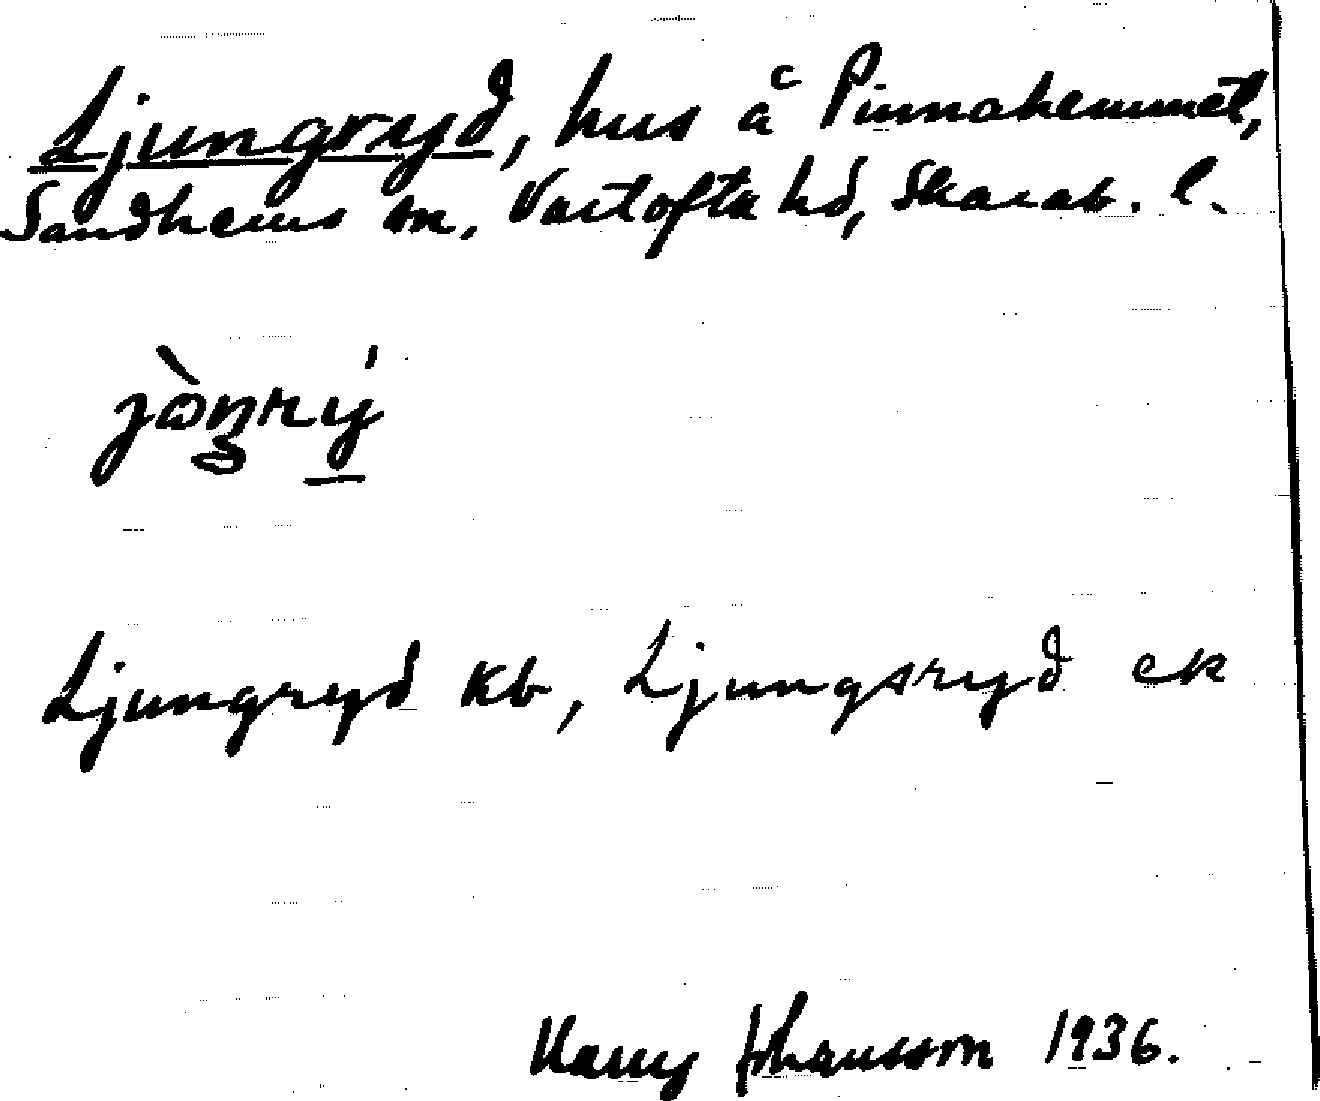 Ljungryd, hus å Pinnahemmet,
Sandhems sn, Vartofta hd, Skarab. l.
jòŋrý
Ljungryd kb, Ljungsryd ek
Harry Johansson 1936.